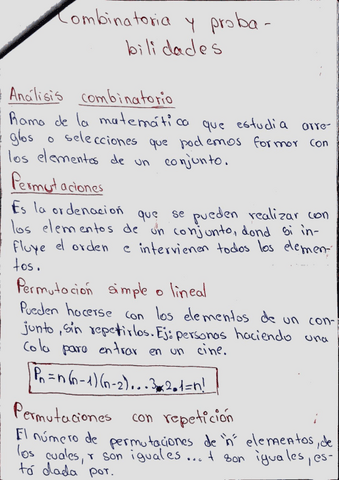 Combinatoria y proba-
bilidades
Análisis combinatorio
Rama de la matemática que estudia arre-
glos o selecciones que podemos formar con
los elementos de un conjunto.
Permutaciones
Es la ordenación que se pueden realizar con
los elementos de un conjunto, dond si in-
fluye el orden e intervienen todos los elemen-
tos.
Permutación simple o lineal
Pueden hacerse con los elementos de un con-
junto, sin repetirlos. Ej: personas haciendo una
cola para entrar en un cine.
Pn = n(n-1)(n-2)...3.2.1=n!
Permutaciones con repetición
El número de permutaciones de "n" elementos, de
los cuales, r son iguales ... t son iguales, es-
tá dada por.